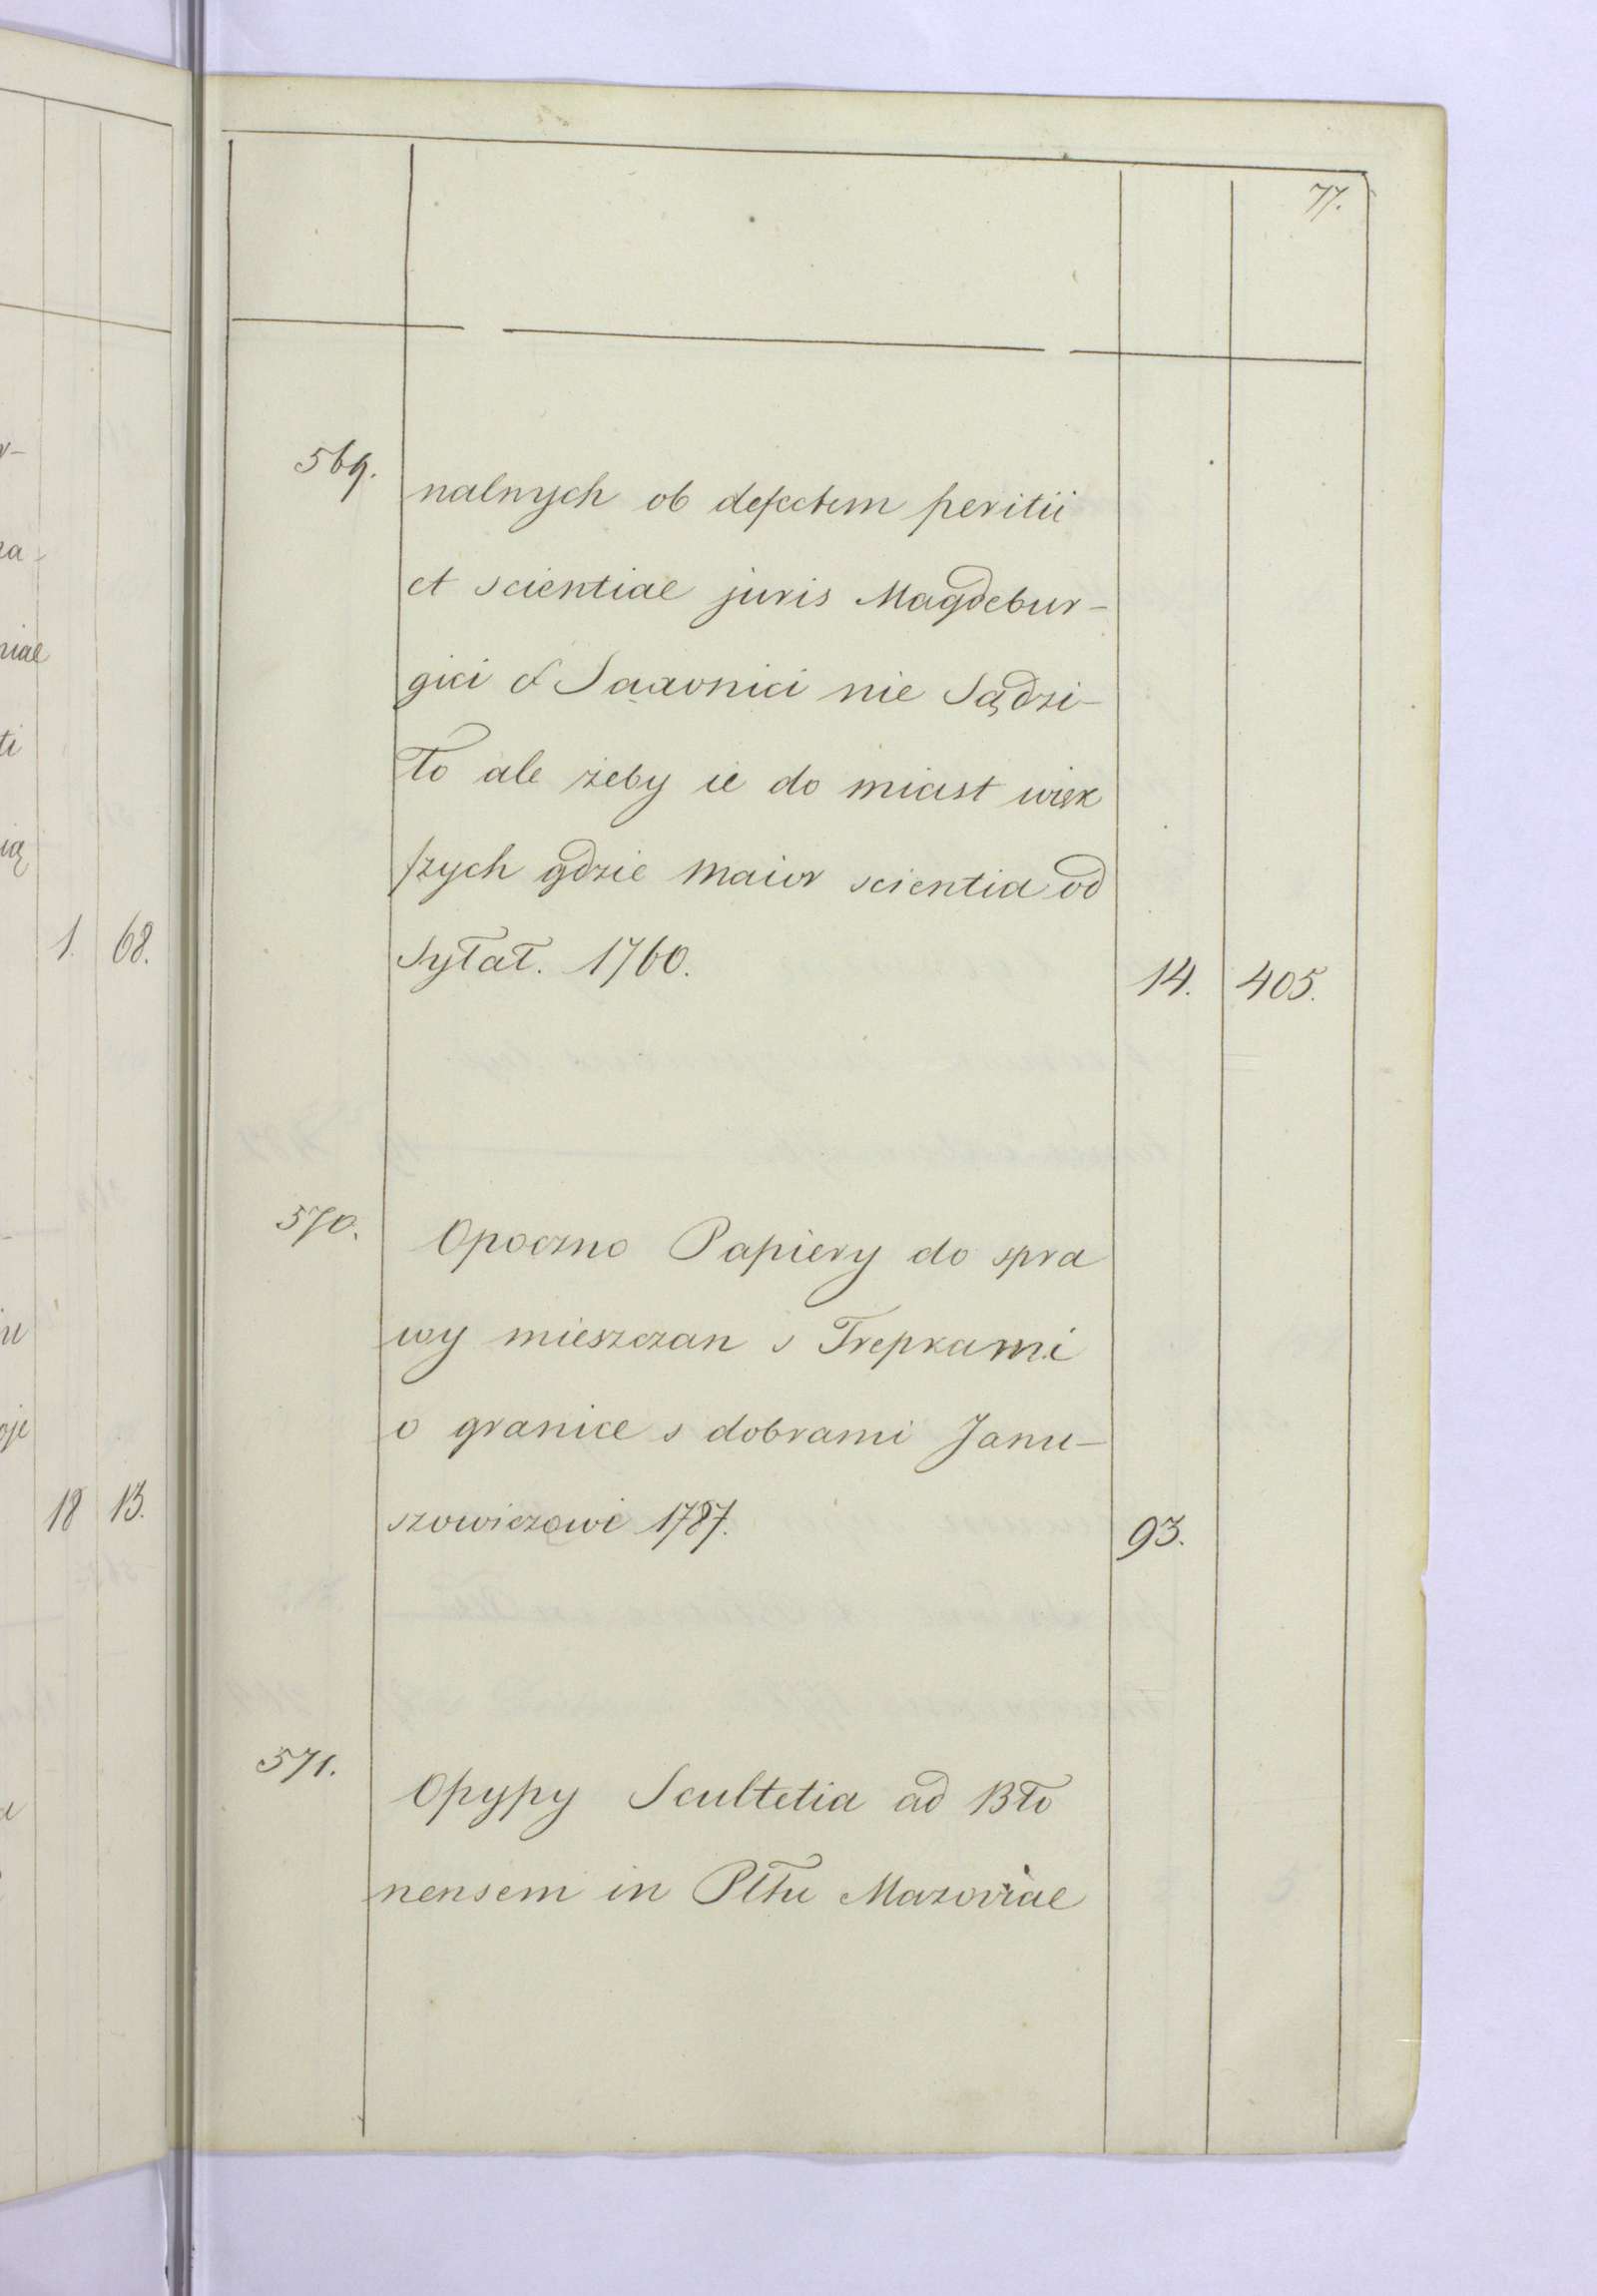 77.
569.
nalnych ob defectem peritii
et scientiae juris Magdebur-
gici & Saxonici nie Sądzi-
ło ale żeby ie do miast więk
szych gdzie maior scientia od
Syłał. 1760.
14. 405.
570.
Opoczno Papiery do spra
wy mieszczan s Trepkami
o granice s dobrami Janu-
szowiczowi 1787.
93.
571.
Opypy Scultetia ad Bło
nensem in Pltu Mazoviae
1. 68.
18 13.